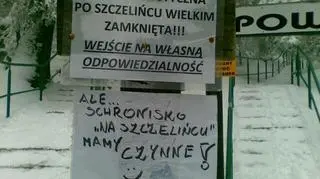 PO SZCZELIŃCU WIELKIM
ZAMKNIĘTA!!!
WEJŚCIE NA WŁASNĄ
ODPOWIEDZIALNOŚĆ
POW
ALE...
SCHRONISKO
"NA SZCZELIŃCU"
MAMY CZYNNE!